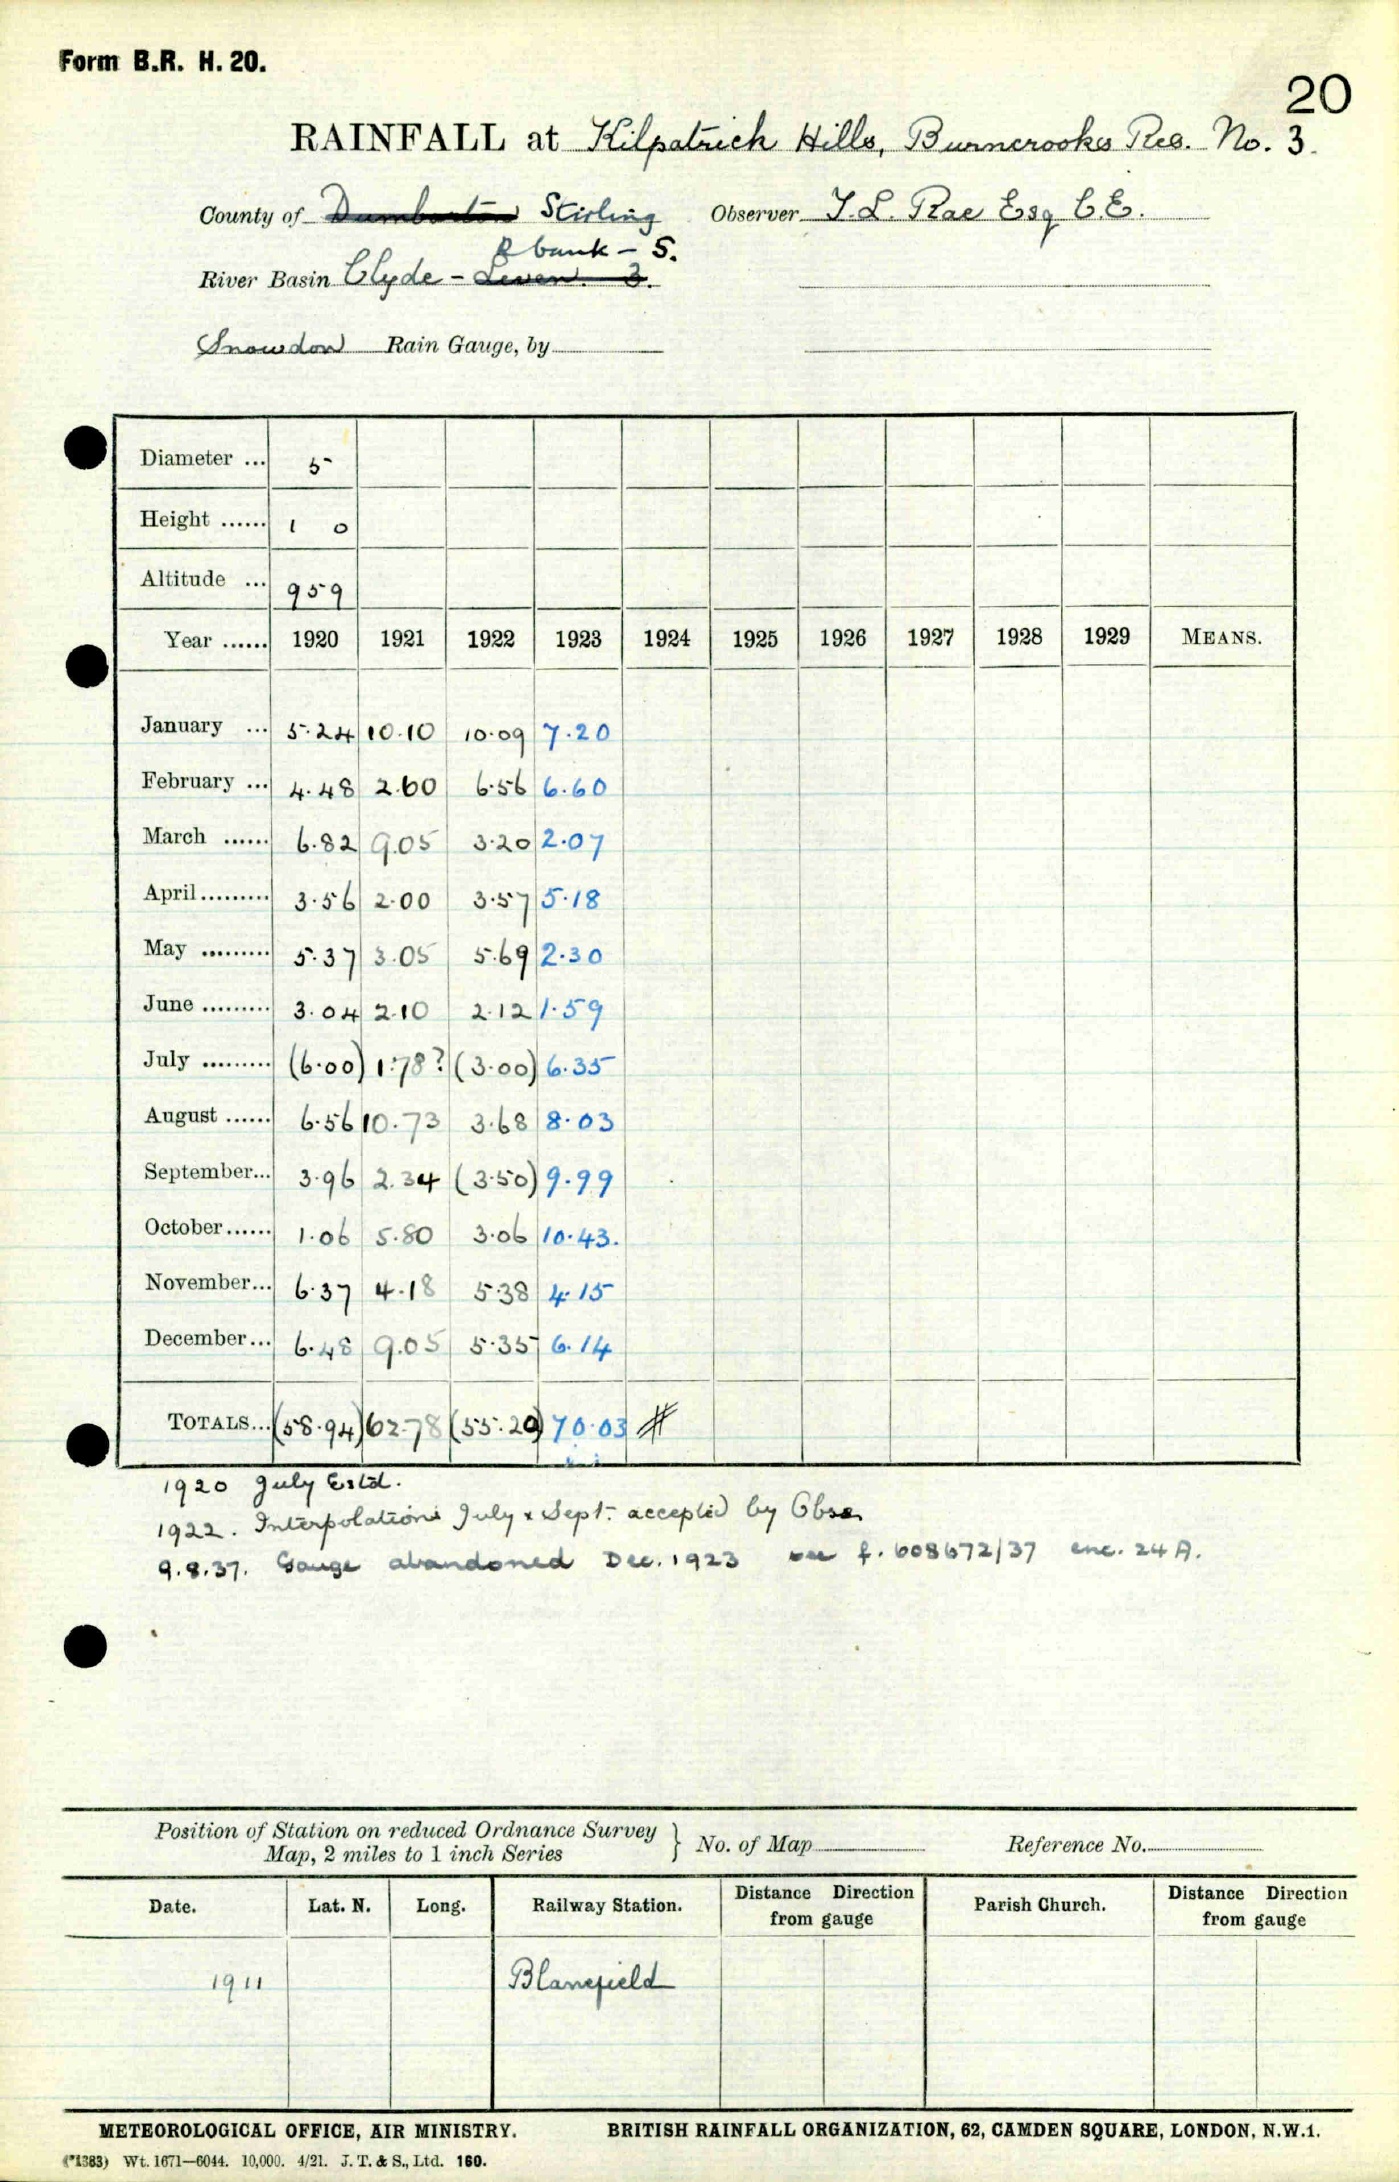 Form B.R. H. 20.
20
RAINFALL at Kilpatrick Hills, Burncrooks Res. No. 3.
County of Dumbarton Stirling Observer T. L. Rae Esq C.E.
R bank - 5.
River Basin Clyde - Leven. 3.
Snowdon Rain Gauge, by
Diameter ... 5
Height ...... 1 0
Altitude ... 959
Year ...... 1920 1921 1922 1923 1924 1925 1926 1927 1928 1929 MEANS.
January ... 5.24 10.10 10.09 7.20
February ... 4.48 2.60 6.56 6.60
March ...... 6.82 9.05 3.20 2.07
April ......... 3.56 2.00 3.57 5.18
May ......... 5.37 3.05 5.69 2.30
June ......... 3.04 2.10 2.12 1.59
July ......... (6.00) 1.78? (3.00) 6.35
August ...... 6.56 10.73 3.68 8.03
September... 3.96 2.34 (3.50) 9.99
October ...... 1.06 5.80 3.06 10.43.
November... 6.37 4.18 5.38 4.15
December... 6.48 9.05 5.35 6.14
TOTALS... (58.94) 62.78 (55.20) 70.03 #
1920 July Estd.
1922. Interpolations July & Sept. accepted by Obsr.
9.8.37. Gauge abandoned Dec. 1923 see f. 608672/37 enc. 24A.
Position of Station on reduced Ordnance Survey
Map, 2 miles to 1 inch Series } No. of Map Reference No.
Date. Lat. N. Long. Railway Station. Distance Direction from gauge Parish Church. Distance Direction from gauge
1911 Blanefield
METEOROLOGICAL OFFICE, AIR MINISTRY. BRITISH RAINFALL ORGANIZATION, 62, CAMDEN SQUARE, LONDON, N.W.1.
(*1383) Wt. 1671—6044. 10,000. 4/21. J. T. & S., Ltd. 160.